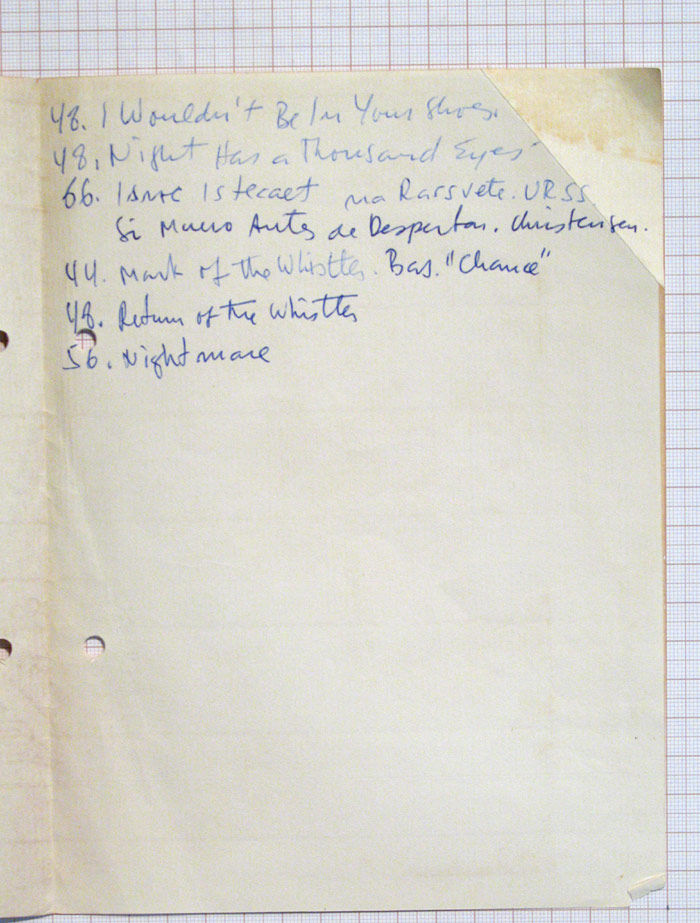 48. I Wouldn't Be In Your Shoes.
48. Night Has a Thousand Eyes
66. Istecaet na Rassvete. URSS
Si Muero Antes de Despertar. Christensen.
44. Mark of the Whistler. Bas. "Chance"
48. Return of the Whistler
56. Nightmare